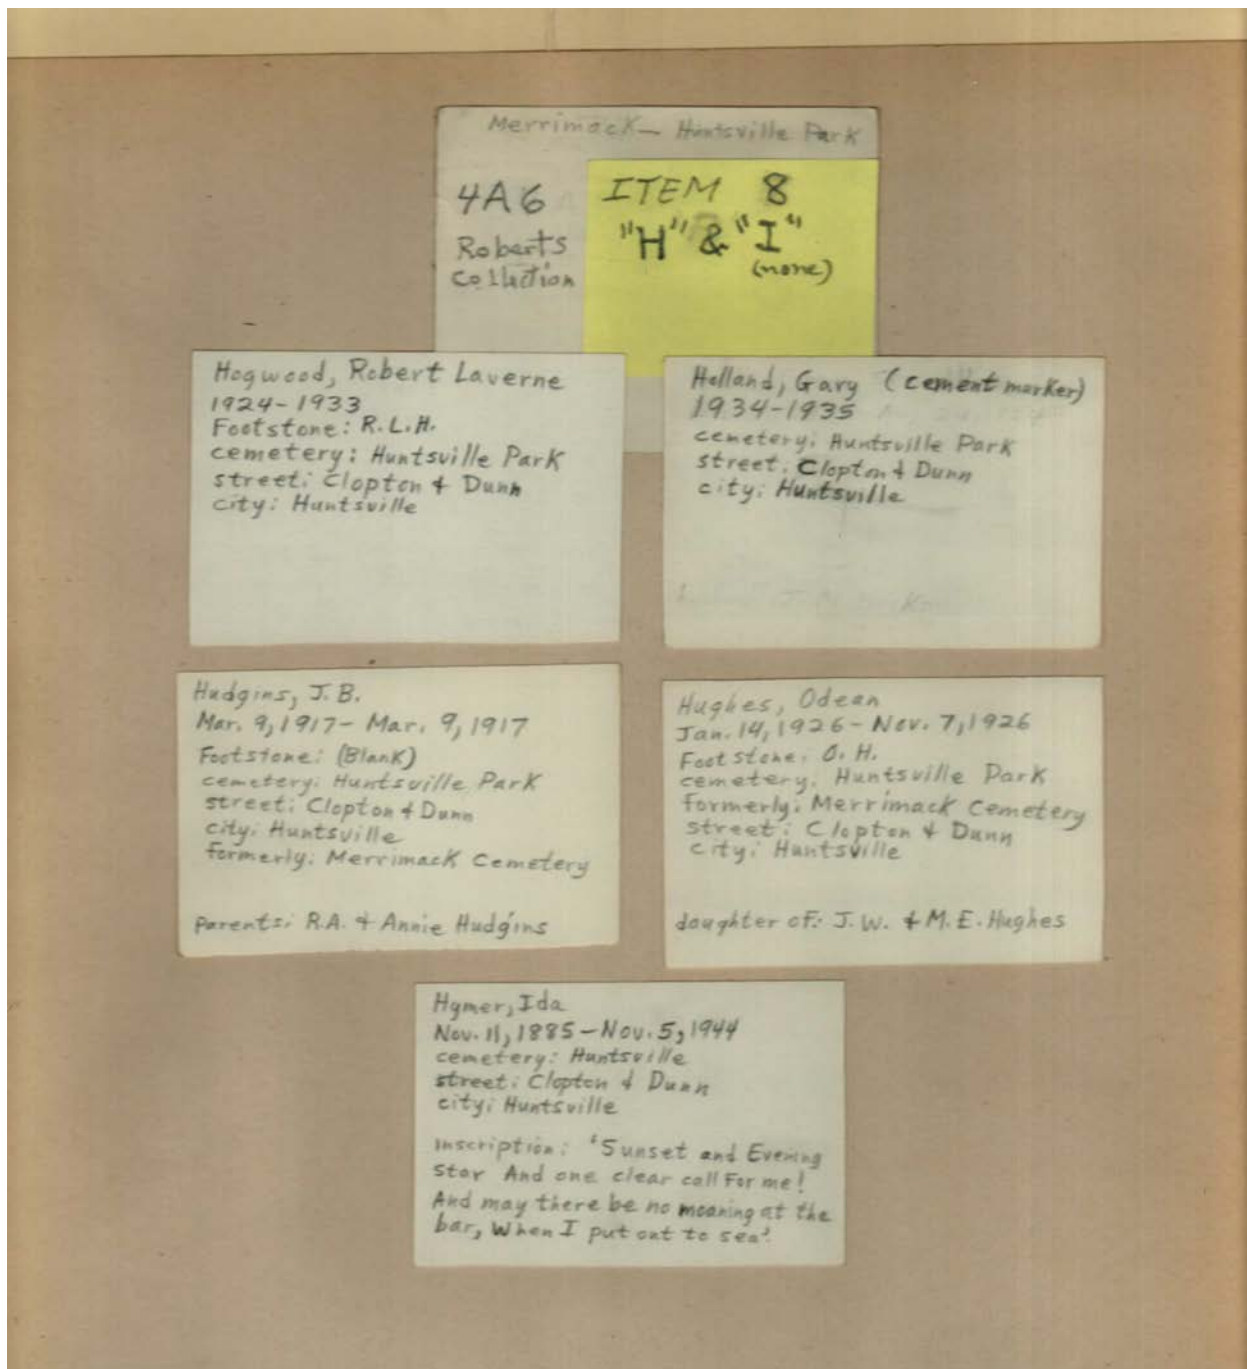 Merrimack - Huntsville Park
4A6
Roberts
Collection
ITEM 8
"H" & "I"
(none)
Hogwood, Robert Laverne
1924-1933
Footstone: R.L.H.
cemetery: Huntsville Park
street: Clopton & Dunn
city: Huntsville
Holland, Gary (cement marker)
1934-1935
cemetery: Huntsville Park
street: Clopton & Dunn
city: Huntsville
Hudgins, J.B.
Mar. 9, 1917 - Mar. 9, 1917
Footstone: (Blank)
cemetery: Huntsville Park
street: Clopton & Dunn
city: Huntsville
formerly: Merrimack Cemetery
parents: R.A. & Annie Hudgins
Hughes, Odean
Jan. 14, 1926 - Nov. 7, 1926
Footstone: O.H.
cemetery: Huntsville Park
formerly: Merrimack Cemetery
street: Clopton & Dunn
city: Huntsville
daughter of: J.W. & M.E. Hughes
Hymer, Ida
Nov. 11, 1885 - Nov. 5, 1944
cemetery: Huntsville
street: Clopton & Dunn
city: Huntsville
Inscription: 'Sunset and Evening
Star And one clear call For me!
And may there be no moaning at the
bar, When I put out to sea'.